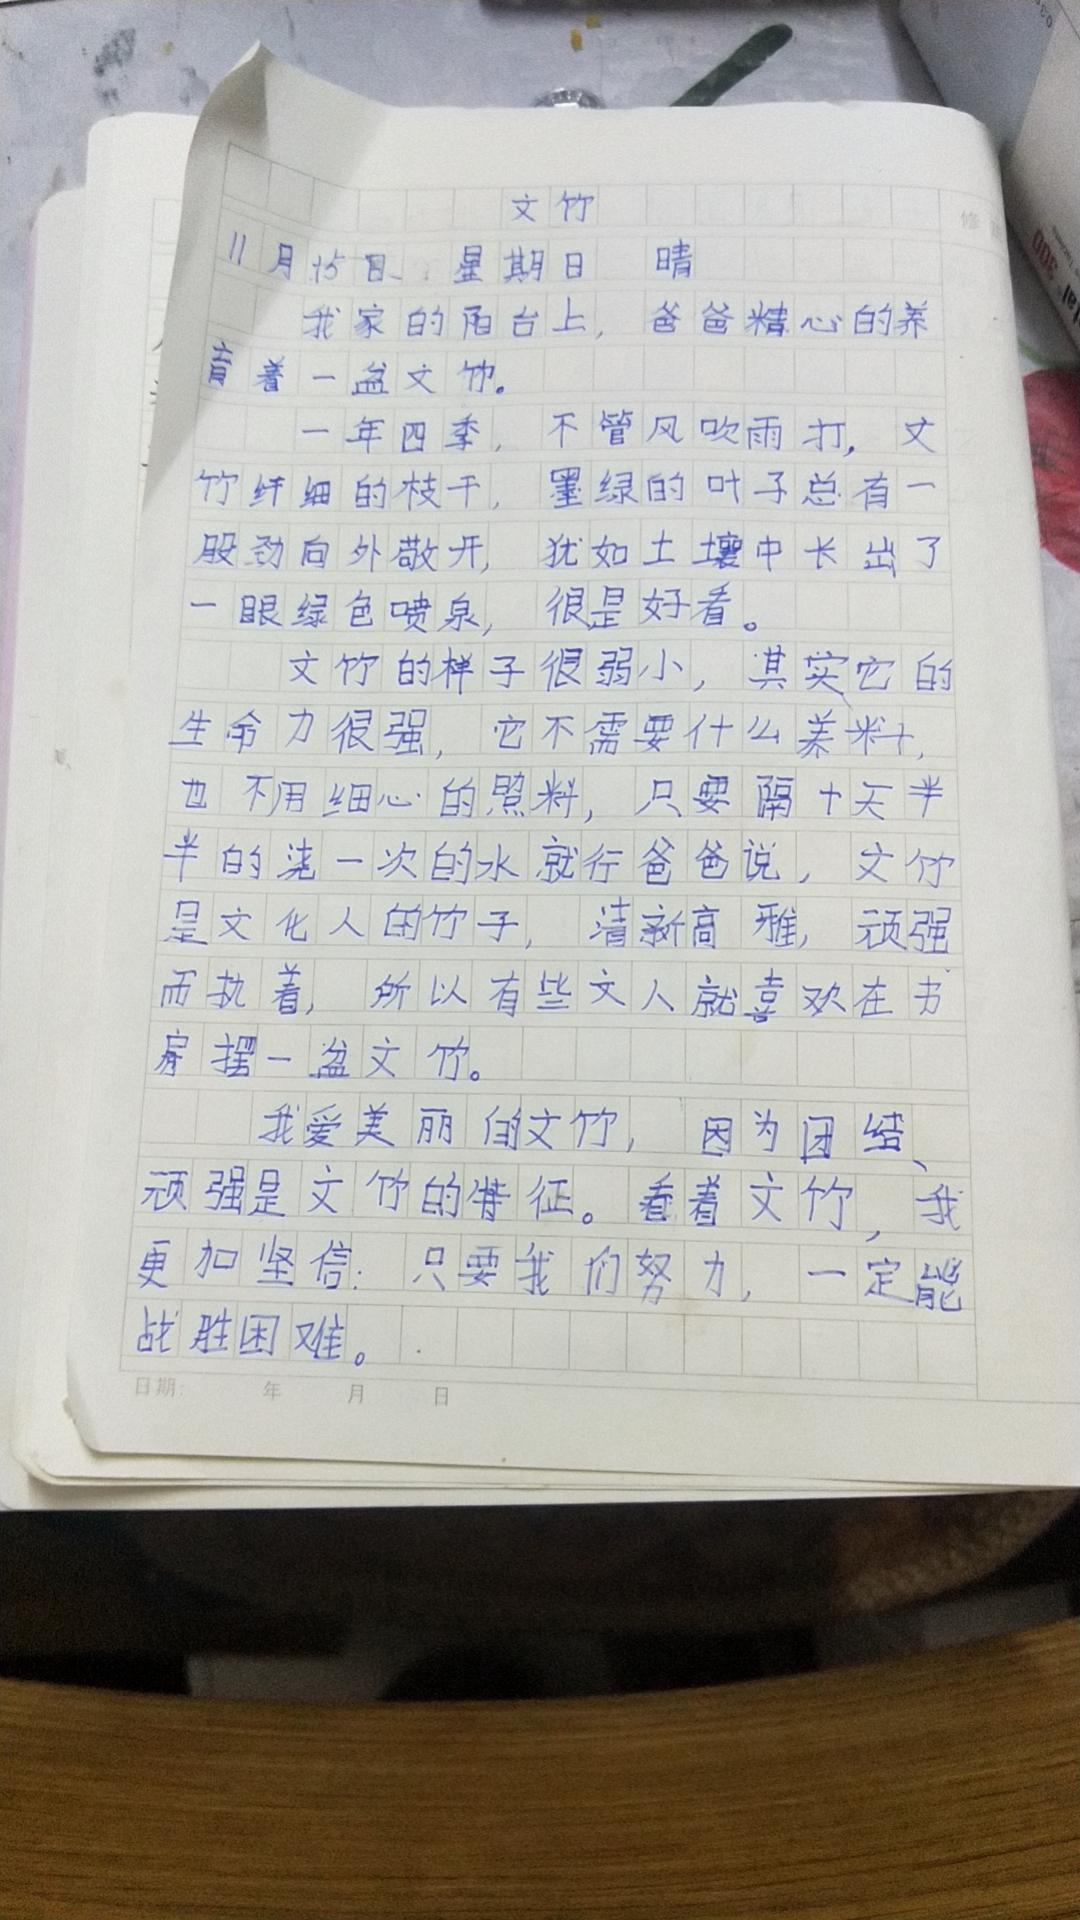 文竹
11月15日 星期日 晴
我家的阳台上，爸爸精心的养
育着一盆文竹。
一年四季，不管风吹雨打，文
竹纤细的枝干，墨绿的叶子总有一
股劲向外敞开，犹如土壤中长出了
一眼绿色喷泉，很是好看。
文竹的样子很弱小，其实它的
生命力很强，它不需要什么养料，
也不用细心的照料，只要隔十天半
半的浇一次的水就行爸爸说，文竹
是文化人的竹子，清新高雅，顽强
而执着，所以有些文人就喜欢在书
房摆一盆文竹。
我爱美丽的文竹，因为团结、
顽强是文竹的特征。看着文竹，我
更加坚信：只要我们努力，一定能
战胜困难。
日期： 年 月 日
修
300